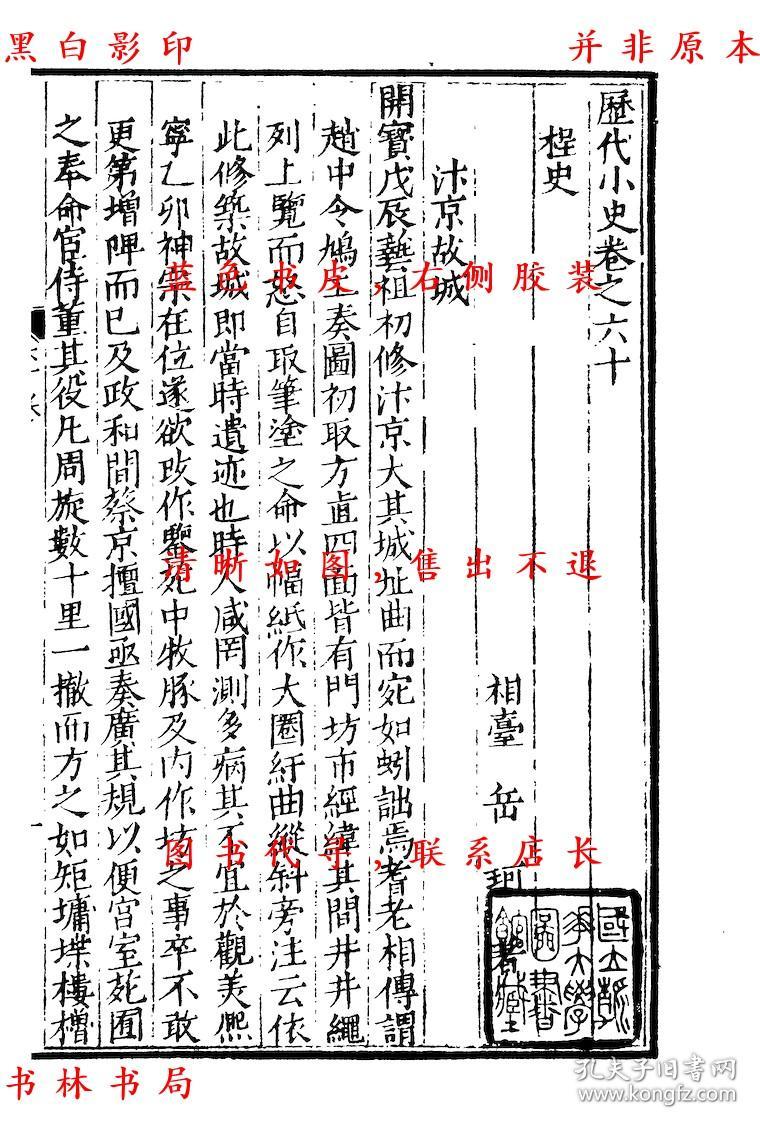 黑白影印
并非原本
歷代小史卷之六十
桯史
相臺 岳 珂
汴京故城
開寶戊辰藝祖初修汴京大其城址曲而宛如蚓詘焉耆老相傳謂
趙中令鳩工奏圖初取方直四面皆有門坊市經緯其間井井繩
列上覽而怒自取筆塗之命以幅紙作大圈紆曲縱斜旁注云依
此修築故城即當時遺迹也時人咸罔測多病其不宜於觀美熈
寧乙卯神宗在位遂欲改作鑒苑中牧豚及内作坊之事卒不敢
更第增陴而已及政和間蔡京擅國亟奏廣其規以便宮室苑囿
之奉命宦侍董其役凡周旋數十里一撤而方之如矩墉堞樓櫓
蓝色书皮，右侧胶装
清晰如图，售出不退
图书代寻，联系店长
书林书局
孔夫子旧书网
www.kongfz.com